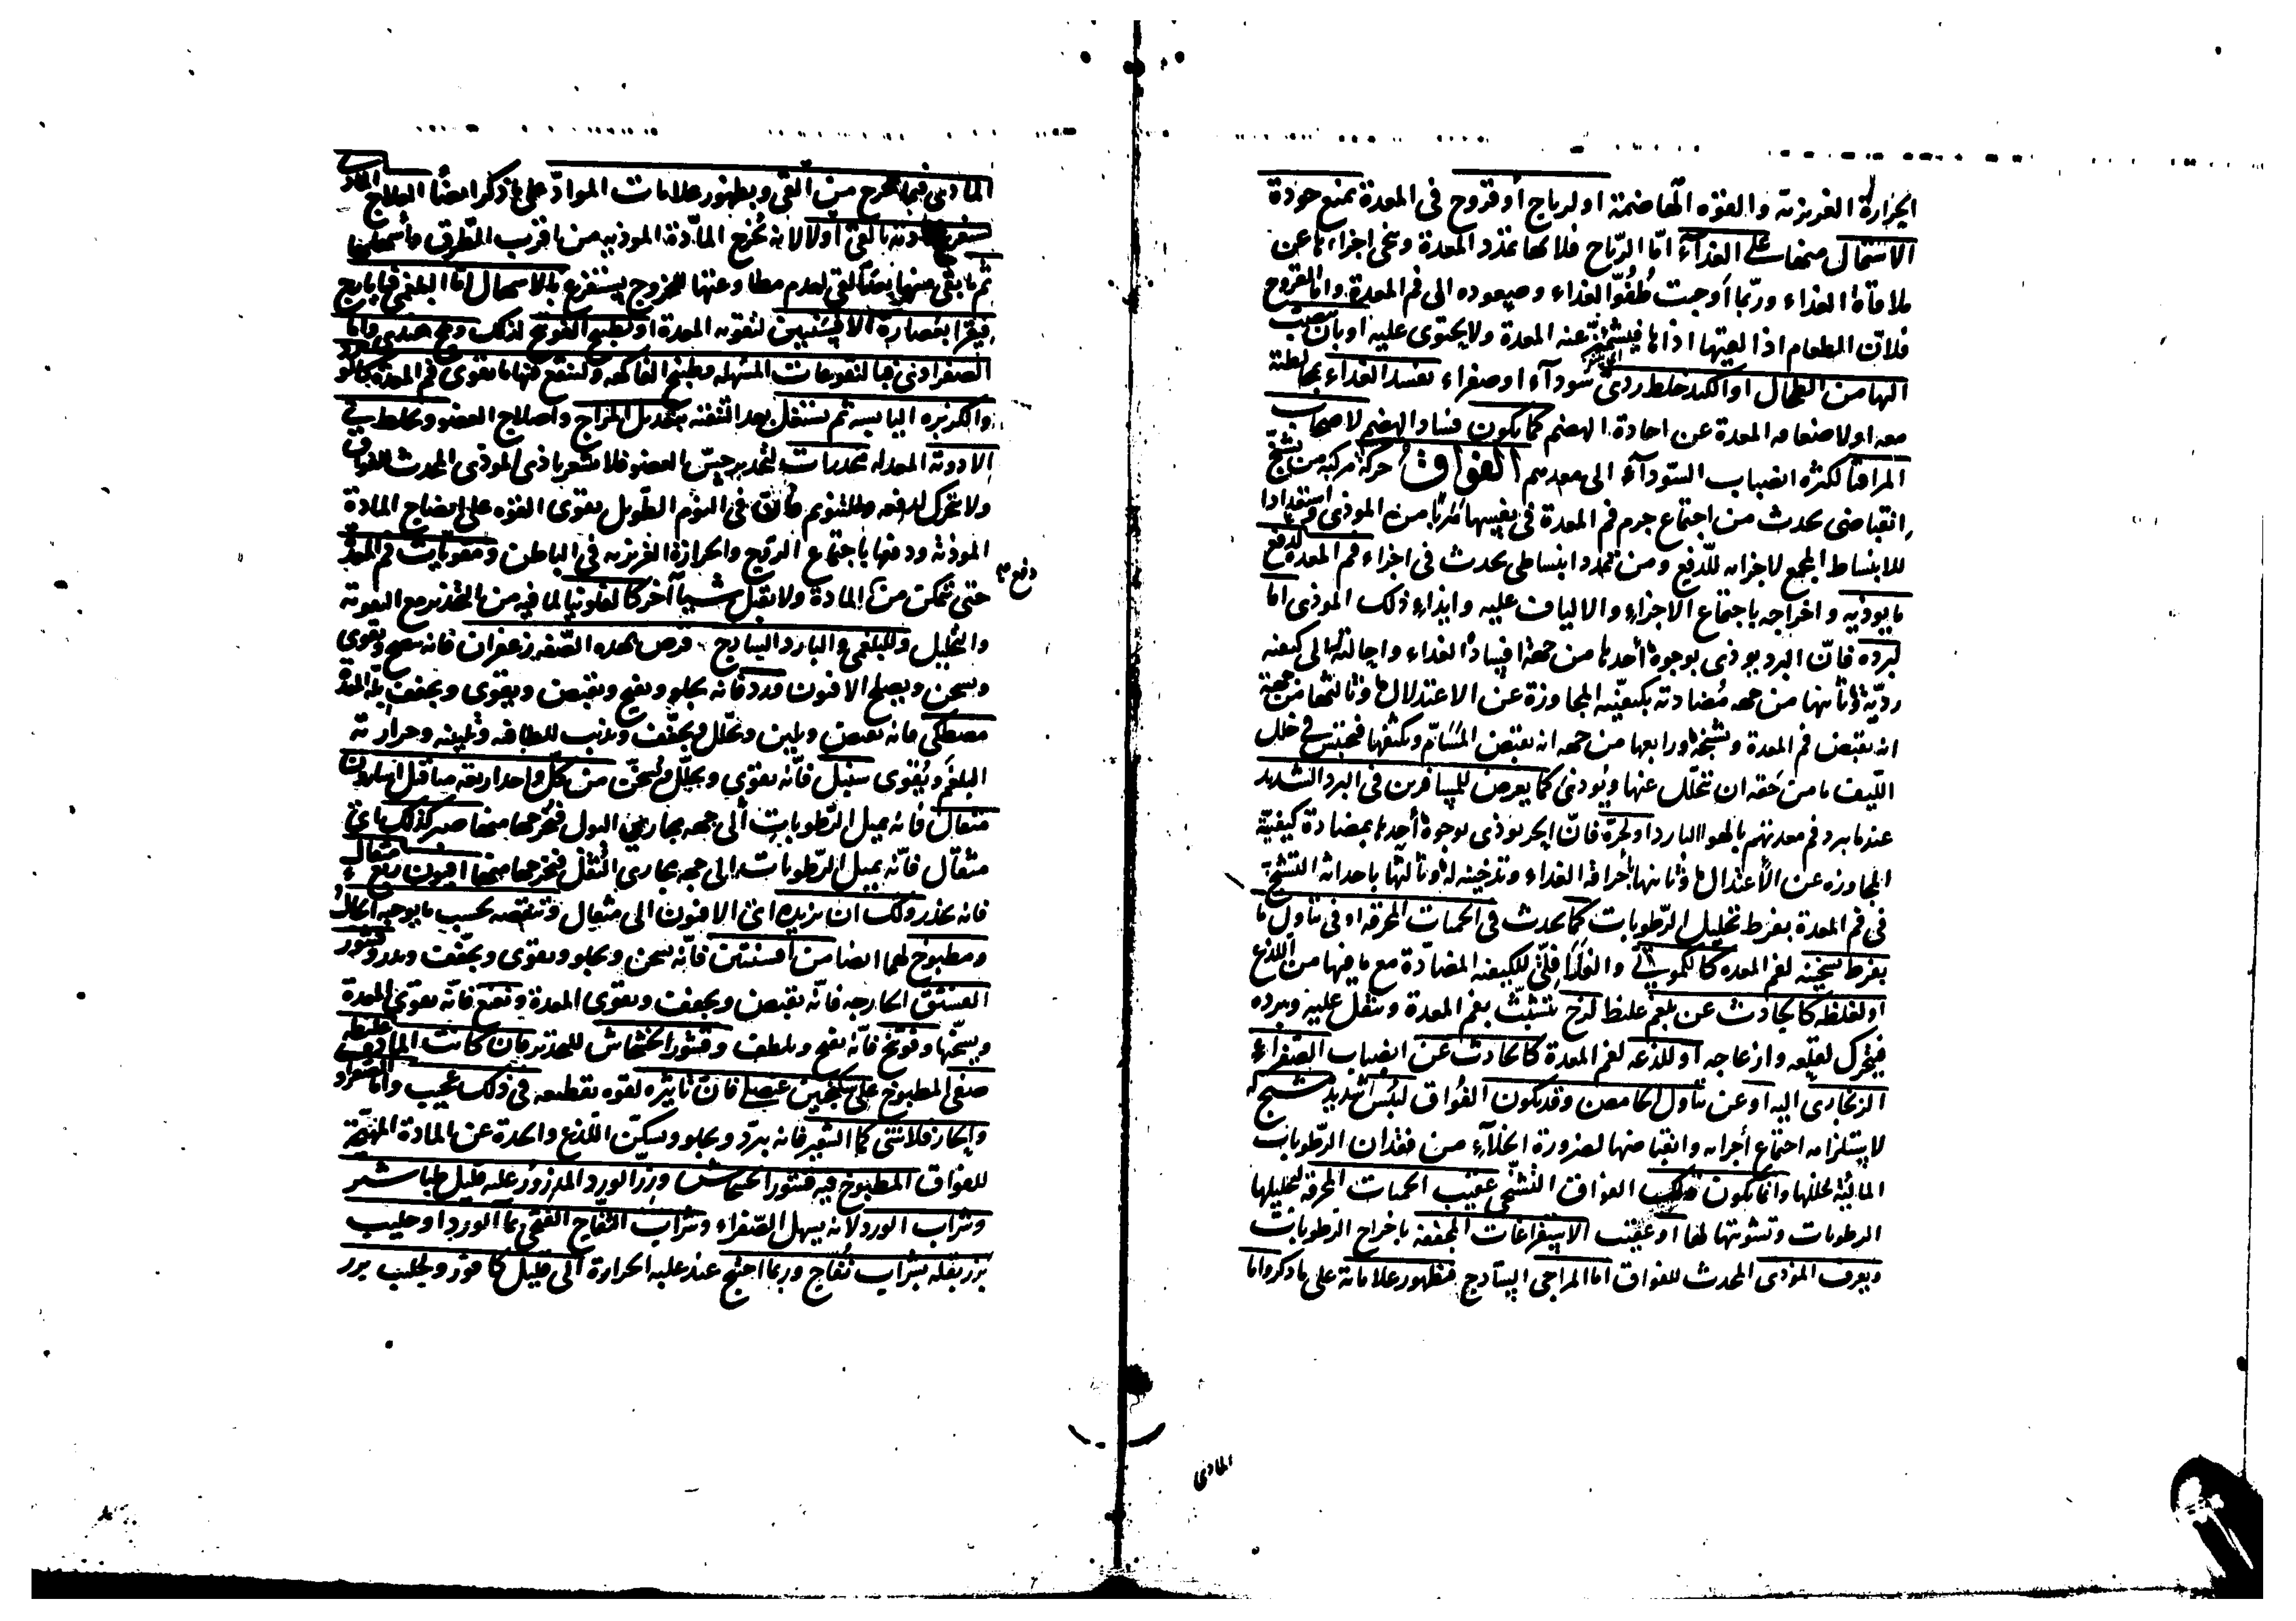 الحرارة الغريزية والقوة الهاضمة او لرياح أو قروح فى المعدة يمنع جودة
الاشتمال منها على الغذاء اما الرياح فلانها تمدد المعدة وتنحى اجزاءها عن
ملاقاة الغذاء وربما أوجبت طُفُوّ الغذاء وصعوده الى فم المعدة واما القروح
فلان الطعام اذا لقيها اذاها فيشمئز عنه المعدة ولا يحتوى عليه او بان ينصب
اليها من الطحال او الكبد خلط ردى سوداء او صفراء يفسد الغذاء بمخالطته
معه او لاضعافه المعدة عن اجادة الهضم كما يكون فساد الهضم لاصحاب
المراقيا لكثرة انصباب السوداء الى معدهم الفواق حركة مركبة من تشنج
انقباضى يحدث من اجتماع جرم فم المعدة فى نفسها هربا من الموذى استعدادا
للانبساط الجمع لاجزائه للدفع ومن تمدد انبساطى يحدث فى اجزاء فم المعدة لدفع
ما يوذيه واخراجه باجتماع الاجزاء والالياف عليه وايذاء ذلك الموذى اما
لبرده فان البرد يوذى بوجوه أحدها من جهة افساد الغذاء واحالته الى كيفية
ردية وثانيها من جهة مضادته بكيفيته المجاوزة عن الاعتدال وثالثها من جهة
انه يقبض فم المعدة ويشنجه ورابعها من جهة انه يقبض المسام ويكثفها فيحتبس فى خلل
الليف ما من حقه ان يتحلل عنها ويوذى كما يعرض للمسافرين فى البرد الشديد
عندما يبرد فم معدتهم بالهوا البارد او لحرّه فان الحر يوذى بوجوه أحدها بمضادة كيفيته
المجاوزة عن الاعتدال وثانيها باحراقه الغذاء وتدخينه له وثالثها باحداث التشنج
فى فم المعدة بفرط تحليل الرطوبات كما يحدث فى الحميات المحرقة او فى تناول ما
يفرط تسخينه لفم المعدة كالكمونى والفلافلى للكيفية المضادة مع ما فيها من اللذع
او لغلظه كالحادث عن بلغم غليظ لزج يتشبث بفم المعدة ويثقل عليه ويبرده
فيتحرك لقلعه وازعاجه او للذعه لفم المعدة كالحادث عن انصباب الصفراء
الزنجارى اليه او عن تناول الحامض وقد يكون الفواق ليبس شديد مشنج
لاستلزامه اجتماع أجزائه وانقباضها لضرورة الخلاء من فقدان الرطوبات
المائية لخللها وانما يكون ذلك الفواق التشنجى عقيب الحميات المحرقة لتحليلها
الرطوبات وتشويتها لها او عقيب الاستفراغات المجففة باخراج الرطوبات
ويعرف الموذى المحدث للفواق اما المزاجى الساذج فبظهور علاماته على ما ذكر واما
المادى
المادى فبما يخرج من القى وبظهور علامات المواد على ما ذكر ايضا العلاج المادى
يستفرغ مادته بالقى اولا لانه يخرج المادة الموذية من اقرب الطرق واسهلها
ثم ما بقى منها بعد القى لعدم مطاوعتها للخروج يستفرغ بالاسهال اما البلغمى فبايارج
فيقرا بعصارة الافسنتين لتقويته المعدة او بطبيخ الفوتنج لذلك وملح هندى واما
الصفراوى فبالنقوعات المسهلة وطبيخ الفاكهة وينقع فيها ما يقوى فم المعدة كالورد
والكزبره اليابسة ثم يشتغل بعد التنقية بتعديل المزاج واصلاح العضو ويخلط فى
الادوية المعدلة مخدرات لتخدير حس العضو فلا يشعر باذى الموذى المحدث للفواق
ولا يتحرك لدفعه وللتنويم فان فى النوم الطويل يقوى القوة على انضاج المادة
الموذية ودفعها باجتماع الروح والحرارة الغريزية فى الباطن ومقويات فم المعدة
دفع
حتى يتمكن من المادة ولا يقبل شيئا آخر كالفلونيا لما فيه من التخدير مع التقوية
والتحليل وللبلغمى والبارد الساذج قرص بهذه الصفة زعفران فانه ينضج ويقوى
ويسخن ويصلح الافيون ورد فانه يجلو ويفتح ويقبض ويقوى ويجفف بلة المعدة
مصطكى فانه يقبض ويلين ويحلل ويجفف ويذيب للطافته وتليينه وحرارته
البلغم ويقوى سنبل فانه يقوى ويحلل ويسخن من كل واحد اربعة مثاقيل اسارون
مثقال فانه يميل الرطوبات الى جهة مجارى البول فيخرجها منها صبر كذلك اى
مثقال فانه يميل الرطوبات الى جهة مجارى الثفل فيخرجها منها افيون ربع مثقال
فانه يخدر ولك ان تزيده اى الافيون الى مثقال وتنقصه بحسب ما يوجبه الحال
ومطبوخ لهما ايضا من افسنتين فانه يسخن ويجلو ويقوى ويجفف ويدر وقشور
الفستق الخارجه فانه يقبض ويجفف ويقوى المعدة ونعنع فانه يقوى المعدة
ويسخنها وفوتنج فانه يفتح ويلطف وقشور الخشخاش للتخدير فان كانت المادة غليظة
صفى المطبوخ على سكنجبين عنصلى فان تاثيره لقوه تقطيعه فى ذلك عجيب واما الصفراوى
والحار فلا شى كما الشعير فانه يبرد ويجلو ويسكن اللذع والحدة عن المادة المهيجة
للفواق المطبوخ فيه قشور الخشخاش وبزر الورد المذرور عليه قليل طباشير
وشراب الورد لانه يسهل الصفراء وشراب التفاح الفتحى بماء الورد او حليب
بزر بقلة بشراب تفاح وربما احتيج عند غلبه الحرارة الى قليل كافور وحليب بزر